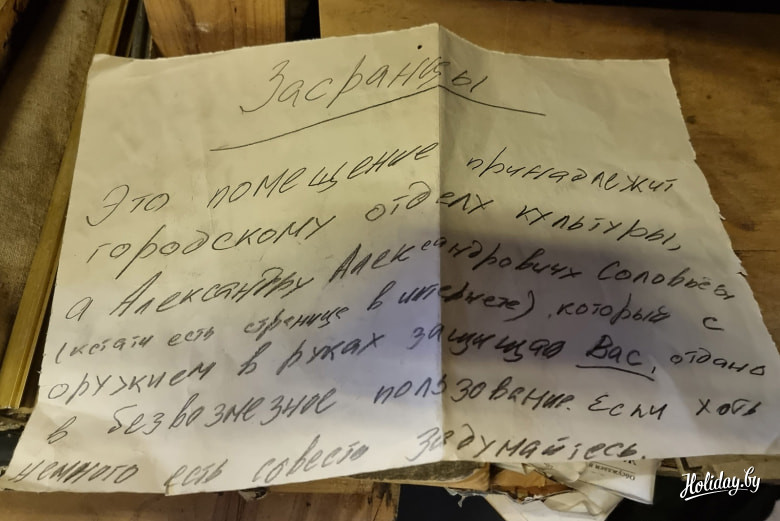 Засранцы
Это помещение принадлежит
городскому отделу культуры,
а Александру Александровичу Соловьеву
(кстати есть страница в интернете), который с
оружием в руках защищал Вас, отдано
в безвозмезное пользование. Если хоть
немного есть совести задумайтесь.
Holiday.by